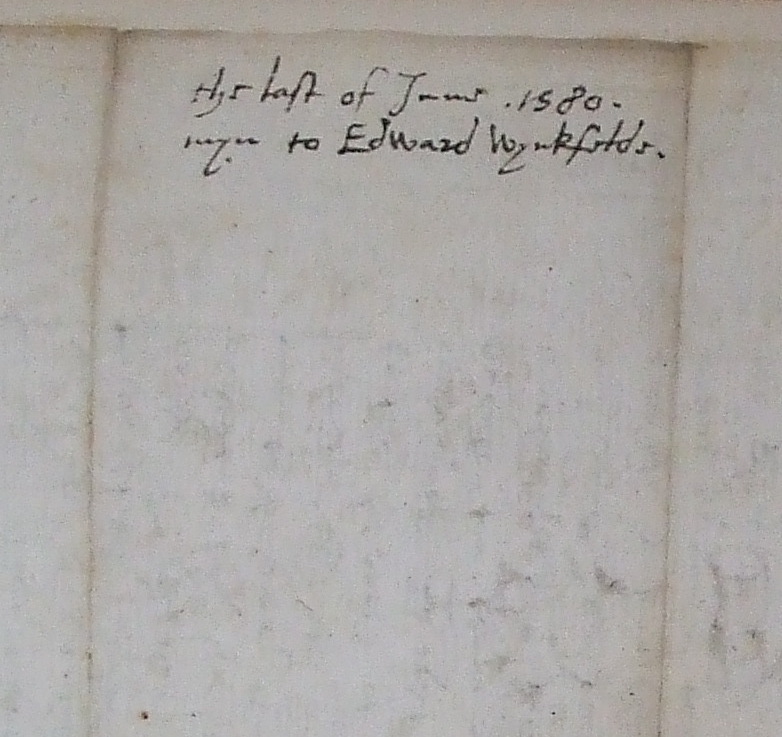 the last of June .1580.
myn to Edward Wynkfelde.